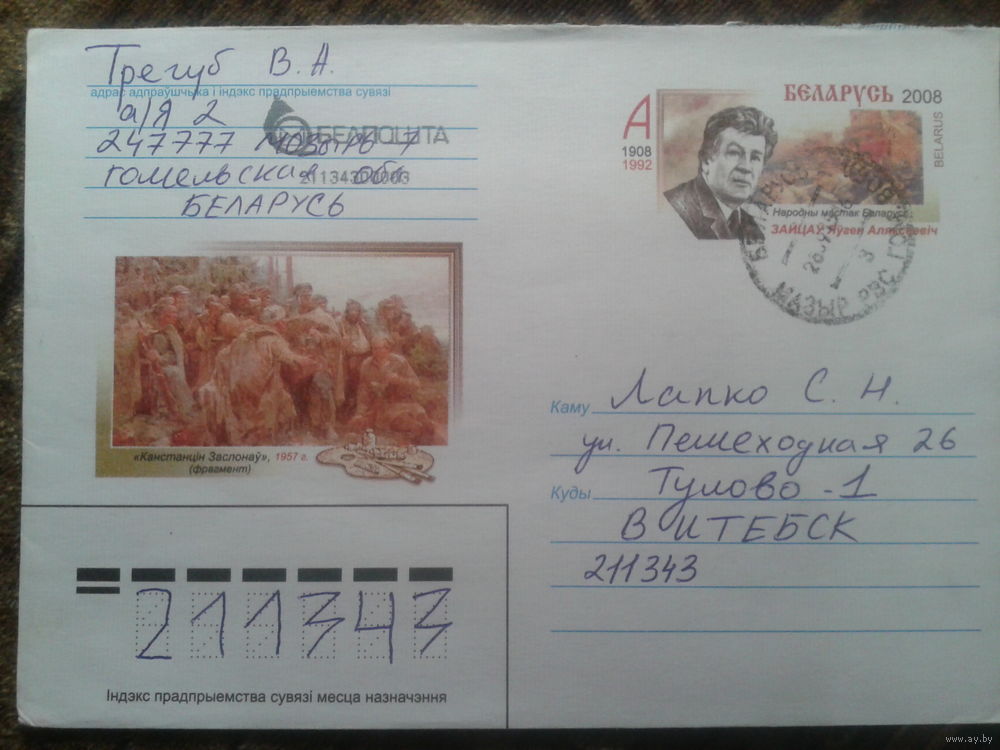 Трегуб В. А.
адрас адпраўшчыка і індэкс прадпрыемства сувязі
а/я 2
БЕЛПОШТА
247777 Мозырь-7
гомельская обл
БЕЛАРУСЬ
А
1908
1992
БЕЛАРУСЬ 2008
BELARUS
Народны мастак Беларусі
ЗАЙЦАЎ Яўген Аляксеевіч
БЕЛАРУСЬ
МАЗЫР РВС ГОМ
«Канстанцін Заслонаў», 1957 г.
(фрагмент)
Каму Лапко С. Н.
ул. Пешеходная 26
Куды Тулово-1
ВИТЕБСК
211343
211343
Індэкс прадпрыемства сувязі месца назначэння
www.ay.by